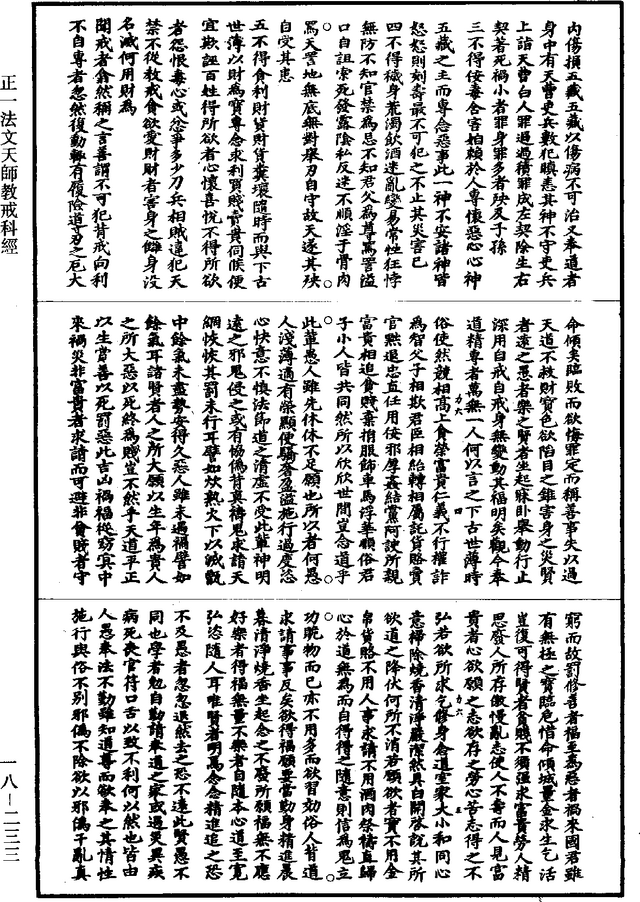 內傷損五藏五藏以傷病不可治又奉道者
身中有天曹吏兵數犯瞋恚其神不守吏兵
上詣天曹白人罪過過積罪成左契除生右
契著死禍小者罪身罪多者殃及子孫
三不得佞毒含害妬賴於人專懷惡心心神
五藏之主而專念惡事此一神不安諸神皆
怒怒則刻壽最不可犯之不止其災害已
四不得穢身荒濁飲酒迷亂變易常性狂悖
無防不知官禁為忌不知君父為尊罵詈溢
口自詛索死發露陰私反迷不順淫于骨肉
罵天詈地無底無對舉刃自守故天遂其殃
自受其患
五不得貪利財貨財貨糞壤隨時而與下古
世薄以財為寶專念求利買賤賣貴伺候便
宜欺誑百姓得所欲者心懷喜悅不得所欲
者怨恨毒心或忿爭多少刀兵相賊違犯天
禁不從教戒貪欲愛財財者害身之讎身沒
名滅何用財為
聞戒者翕然稱之言善謂不可犯背戒向利
不自專者忽然復動輒有履險導刃之厄大
命傾矣臨敗而欲悔罪定而稱善事失以過
天道不救財寶色欲陷目之錐害身之災賢
者遠之愚者樂之賢者坐起寐臥舉動行止
深用自戒自戒身無變動其福明矣觀今奉
道精專者萬無一人何以言之下古世薄時
俗使然競相高上貪榮富貴仁義不行權詐
為智父子相欺君臣相紿轉相屬託貨賂賞
官黜退忠直任用佞邪厚姦結黨阿諛所親
富貴相追貪賤棄捐服飾車馬浮華順俗君
子小人皆共同然所以欣欣世間豈念道乎
此輩愚人雖先休休不足願也所以者何愚
人淺薄適有榮顯便驕奢盈溢施行過度恣
心快意不慎法師道之清虛不受此輩神明
遠之邪鬼侵之或有協偽背真禱鬼求請天
網恢恢其罰未行耳譬如炊熟火下以滅甑
中餘氣未盡勢安得久惡人雖未遇禍譬如
餘氣耳諸賢者人之所大願以生年為貴人
之所大惡以死終為賤豈不然乎天道平正
以生賞善以死罰惡此吉凶禍福從窈冥中
來禍災非富貴者求請而可避非貧賤者守
窮而故罰修善者福至為惡者禍來國君雖
有無極之寶臨危惜命傾城量金求生乞活
豈復可得賢者貪賤不獨強求富貴勞人精
思廢人所存傲慢亂志使人不壽而人見富
貴者心欲願之志欲存之勞心苦志得之不
弘若欲所求乞修身念道室家大小和同心
意掃除燒香清淨嚴潔然具白開啓說其所
欲道之降伏何所不消若願欲者實不用金
帛貨賂不用人事求請不用酒肉祭禱直歸
心於道無為而自得得之隨意則信為鬼立
功貺物而已亦不用多而欲習効俗人背道
求請事事反矣欲得福願要當勤身精進晨
暮清淨燒香坐起念之不廢所願福無不應
好樂者得福無量不樂者自隨本心道至寬
弘恣隨人耳唯賢者明焉念念精進追之恐
不及愚者忽忽退然去之恐不遠此賢愚不
同也學者勉自勤請奉道之家或遇災異疾
病死喪官符口舌以致不利何以然也皆由
人愚奉法不勤雖知道尊而欲奉之其情性
施行與俗不別邪偽不除欲以邪偽干亂真
正一法文天師教戒科經
一八—二三三